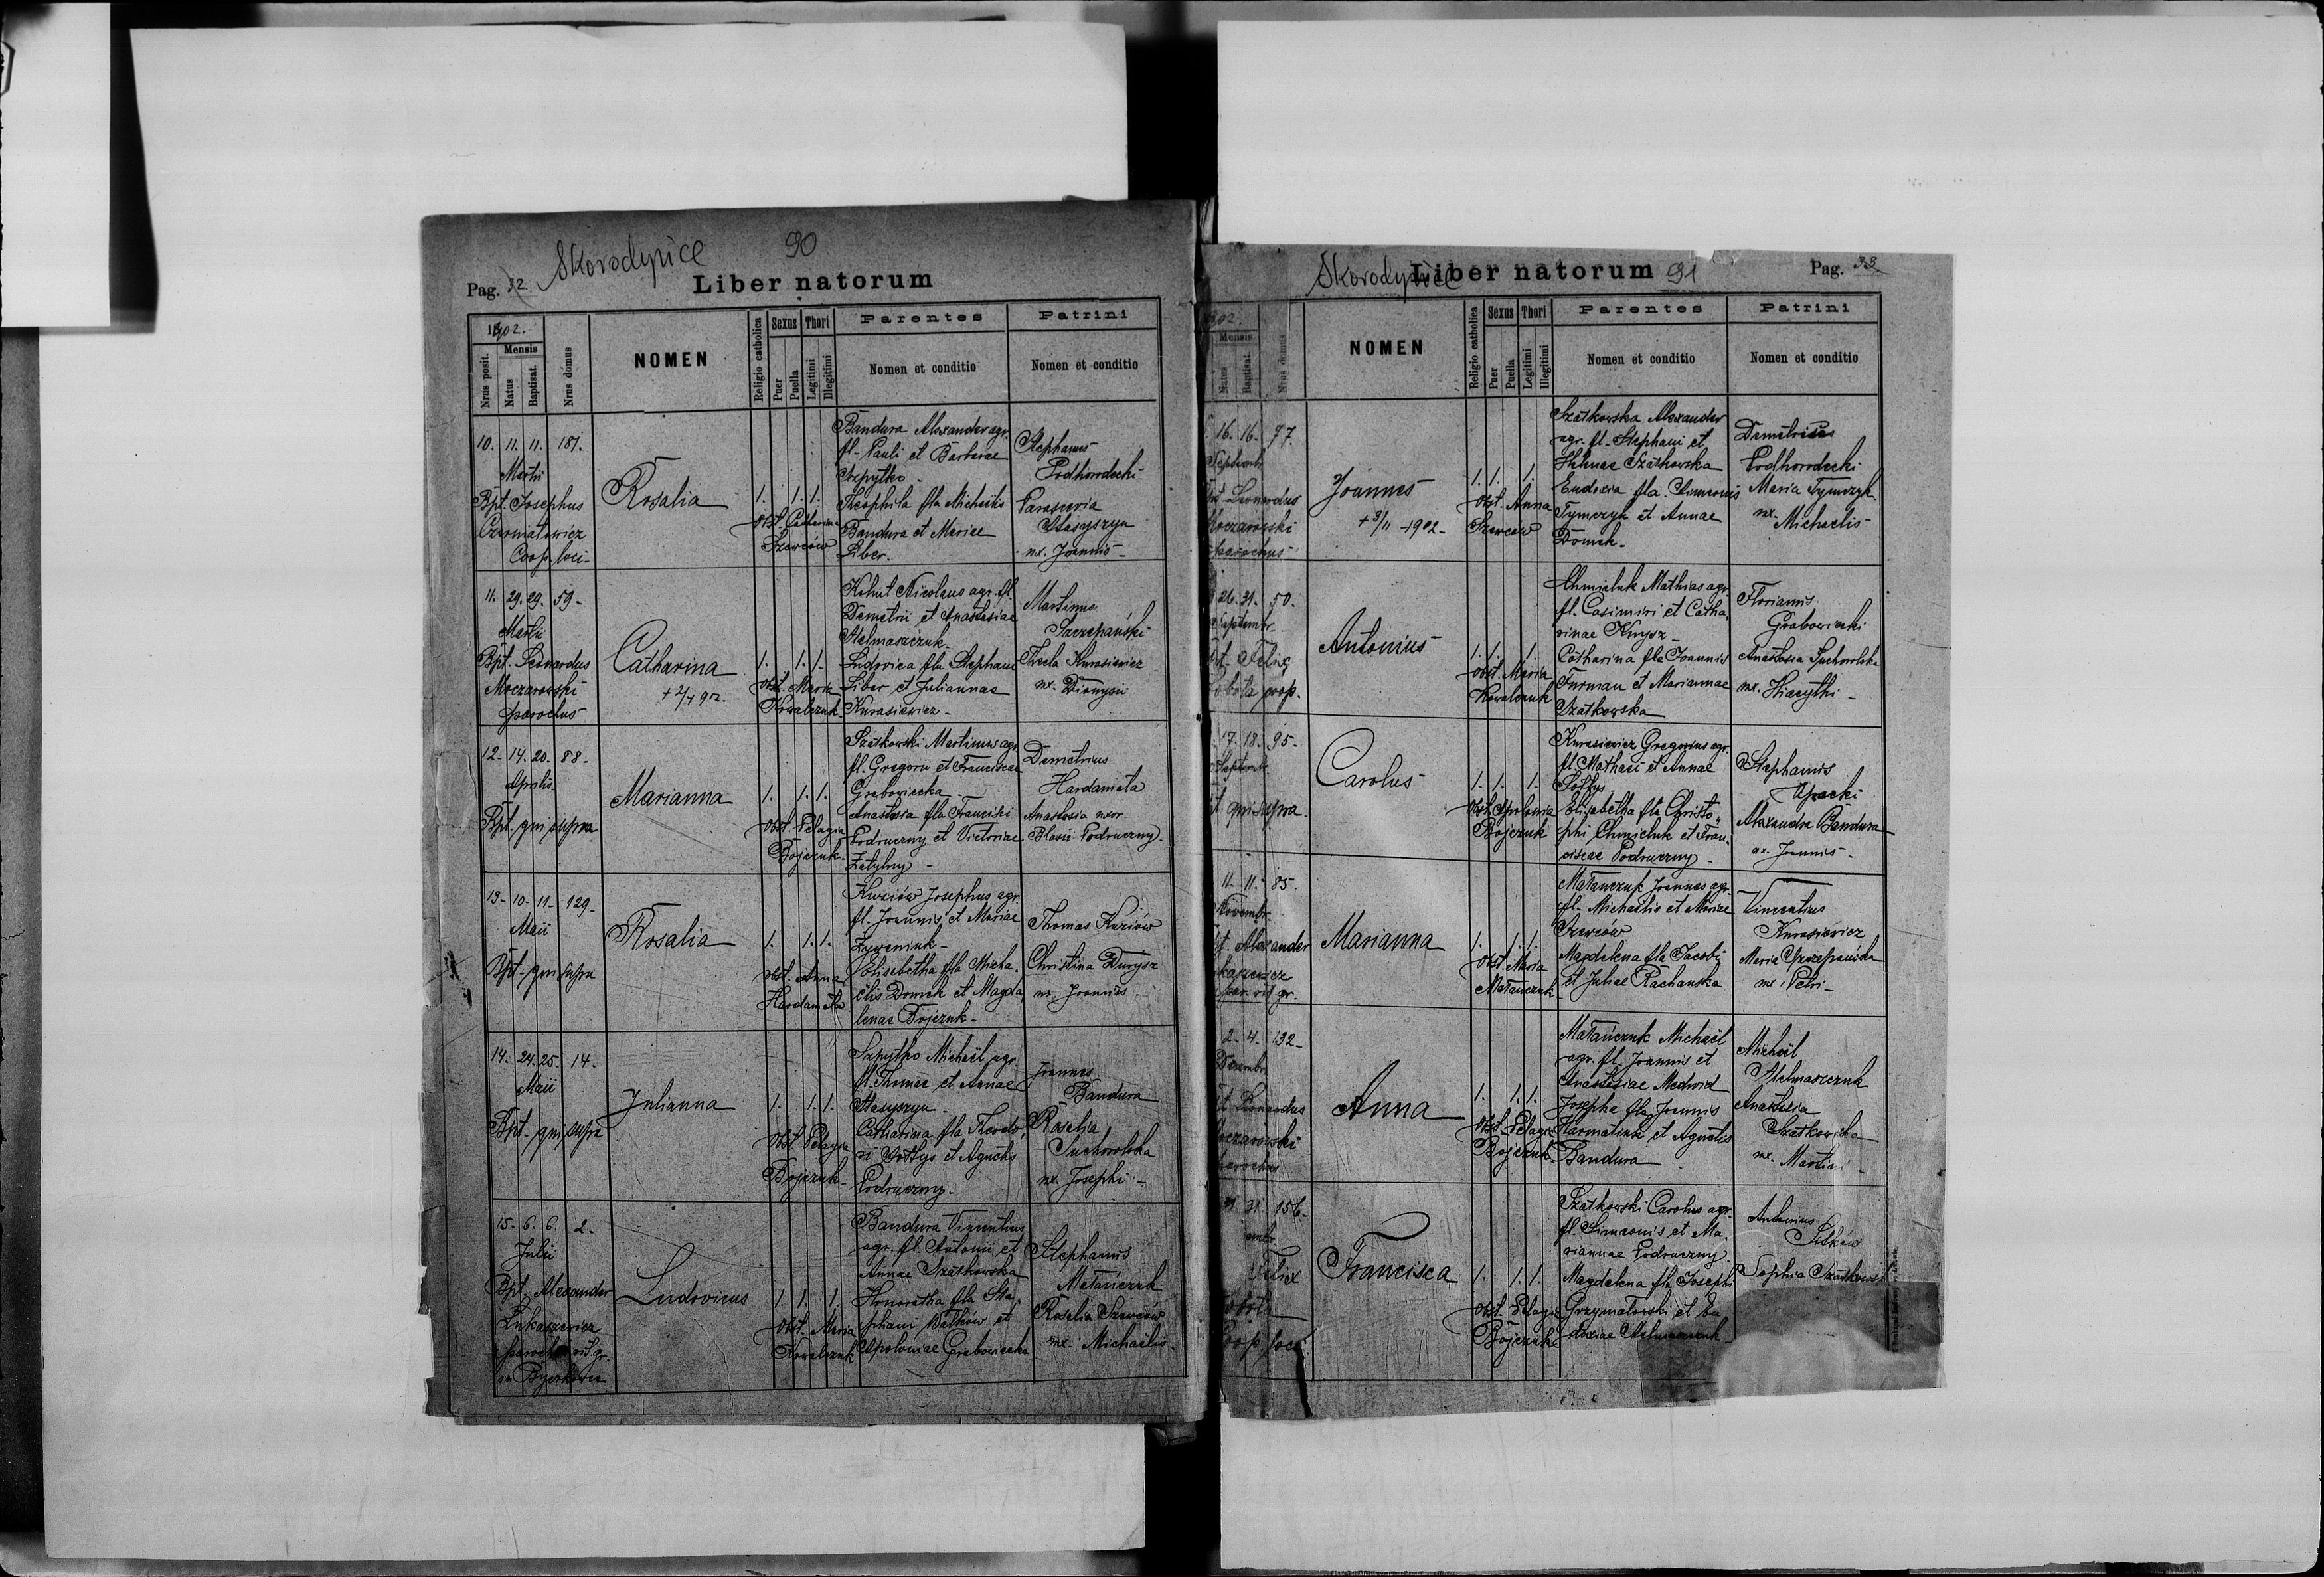 Skorodyńce 90
Pag. 32. Liber natorum
1902.
Nrus posit.
Mensis
Natus
Baptisat.
Nrus domus
NOMEN
Religio catholica
Sexus
Puer
Puella
Thori
Legitimi
Illegitimi
Parentes
Nomen et conditio
Patrini
Nomen et conditio
10. 11. 11. 181.
Martii
Bpt. Josephus
Coop. loci
Rosalia
1. 1. 1.
Obst. Catharina
Szewciów
Bandura Alexander agr.
fl. Pauli et Barbarae
Szpytko
Theophila fla Michaelis
Bandura et Mariae
Liber.
Stephanus
Podhorodecki
Parascevia
Stasyszyn
ux. Joannis
11. 29. 29. 59.
Martii
Bpt. Leonardus
Moczarowski
parochus
Catharina
1. 1. 1.
Obst. Maria
Kowalczuk
Kohut Nicolaus agr. fl.
Demetrii et Anastasiae
Stelmaszczuk
Ludovica fla Stephani
Liber et Juliannae
Kurasiewicz
Martinus
Szczepański
Thecla Kurasiewicz
ux. Dionysii
12. 14. 20. 88.
Aprilis
Bpt. qui supra
Marianna
1. 1. 1.
Obst. Pelagia
Bojczuk
Szatkowski Martinus agr.
fl. Gregorii et Franciscae
Grabowiecka
Anastasia fla Francisci
Podruczny et Victoriae
Demetrius
Hardamata
Anastasia uxor
Blasii Podruczny
13. 10. 11. 129.
Maii
Bpt. qui supra
Rosalia
1. 1. 1.
Obst. Anna
Hardamata
Kuziów Josephus agr.
fl. Joannis et Mariae
Elisabetha fla Micha-
elis Domek et Magda
lenae Bojczuk
Thomas Kuziów
Christina Durysz
ux. Joannis
14. 24. 25. 14.
Maii
Bpt. qui supra
Julianna
1. 1. 1.
Obst. Pelagia
Bojczuk
Szpytko Michaël agr.
fl. Thomae et Annae
Stasyszyn
Catharina fla Theodo-
ri Sołtys et Agnetis
Podruczny
Joannes
Bandura
Rosalia
Suchorolska
ux. Josephi
15. 6. 6. 2.
Julii
Bpt. Alexander
Łukaszewicz
parochus rit. gr.
Ludovicus
1. 1. 1.
Obst. Maria
Kowalczuk
Bandura Vincentius
agr. fl. Antonii et
Annae Szatkowska
Honoratha fla Ste-
phani Wałków et
Apoloniae Grabowiecka
Stephanus
Matańczuk
Rosalia Szewciów
ux. Michaelis
Skorodyńce 91
Liber natorum Pag. 33
1902.
Mensis
Natus
Baptisat.
Nrus domus
NOMEN
Religio catholica
Sexus
Puer
Puella
Thori
Legitimi
Illegitimi
Parentes
Nomen et conditio
Patrini
Nomen et conditio
16. 16. 77.
Leonardus
parochus
Joannes
+ 3/11 1902
1. 1. 1.
Obst. Anna
Szewciów
Szatkowska Alexander
agr. fl. Stephani et
Helenae Szatkowska
Eudoxia fla Simeonis
Tymczyk et Annae
Domek
Demetrius
Podhorodecki
Maria Tymczyk
ux. Michaelis
26. 31. 50.
Septembr.
coop.
Antonius
1. 1. 1.
Obst. Maria
Kowalczuk
Chmieluk Mathias agr.
fl. Casimiri et Catha-
rinae Kurysz
Catharina fla Joannis
Furman et Mariannae
Szatkowska
Florianus
Grabowiecki
Anastasia Suchorolska
ux. Hiacynthi
17. 18. 95.
qui supra.
Carolus
1. 1. 1.
Obst. Apolonia
Bojczuk
Kurasiewicz Gregorius agr.
fl. Mathaei et Annae
Sołtys
Elisabetha fla Christo-
phi Chmieluk et Fran-
ciscae Podruczny
Stephanus
Alexandra Bandura
ux. Joannis
11. 11. 85.
Novembr.
Alexander
rit. gr.
Marianna
1. 1. 1.
Obst. Maria
Matańczuk
Matańczuk Joannes agr.
fl. Michaelis et Mariae
Szewciów
Magdalena fla Jacobi
et Juliae Rachanska
Vincentius
Kurasiewicz
Maria Szczepańska
ux. Petri
2. 4. 192.
Decembr.
Leonardus
parochus
Anna
1. 1. 1.
Obst. Pelagia
Bojczuk
Matańczuk Michaël
agr. fl. Joannis et
Anastasiae Medwid
Josepha fla Joannis
Harmatiuk et Agnetis
Bandura
Michaël
Stelmaszczuk
Anastasia
Szatkowska
ux. Martini
31. 156.
Felix
Coop. loci
Francisca
1. 1. 1.
Obst. Pelagia
Bojczuk
Szatkowski Carolus agr.
fl. Simeonis et Ma-
riannae Podruczny
Magdalena fla Josephi
Grzymałowski et Eu-
doxiae Stelmaszczuk
Antonius
Sophia Szatkowska